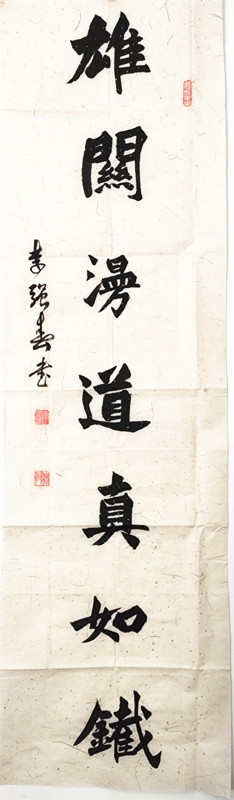 雄關漫道真如鐵
李強春书